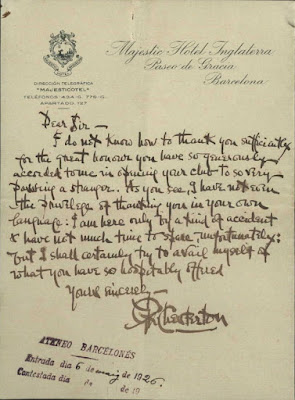 Majestic Hotel Inglaterra
Paseo de Gracia
Barcelona
DIRECCIÓN TELEGRÁFICA
"MAJESTICOTEL"
TELÉFONOS A 5A-G. 775-G.
APARTADO 127
Dear Sir —
I do not know how to thank you sufficiently
for the great honour you have so generously
accorded to me in opening your club to so very
passing a stranger. As you see, I have not even
the privilege of thanking you in your own
language: I am here only by a kind of accident
& have not much time to spare, unfortunately;
but I shall certainly try to avail myself of
what you have so hospitably offered
Yours sincerely
GK Chesterton
ATENEO BARCELONÉS
Entrada día 6 de maig de 1926.
Contestada día de de 19